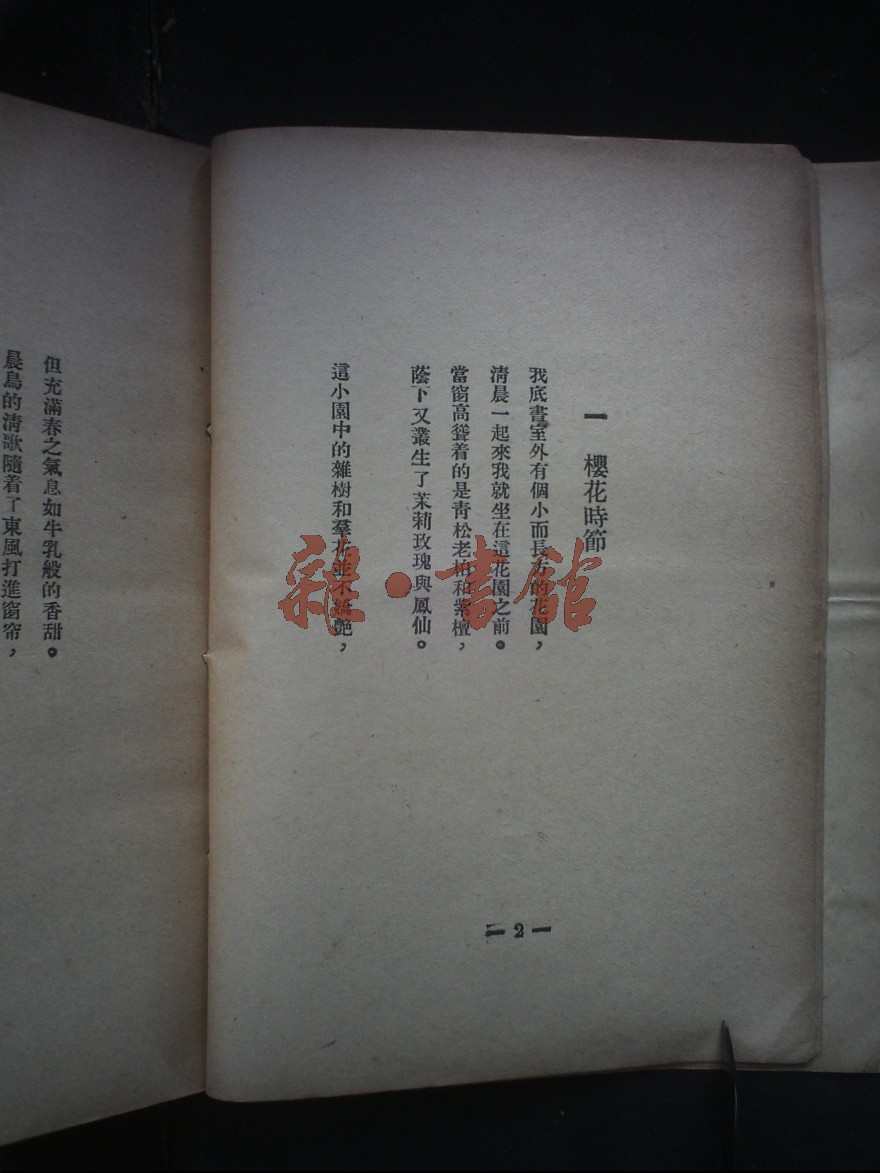 一　櫻花時節
我底書室外有個小而長方的花園，
清晨一起來我就坐在這花園之前。
當窗高聳着的是靑松老柏和紫檀，
蔭下又叢生了茉莉玫瑰與鳳仙。
這小園中的雜樹和羣花並不嬌艷，
—2—
但充滿春之氣息如牛乳般的香甜。
晨鳥的淸歌隨着了東風打進窗帘，
雜·書館